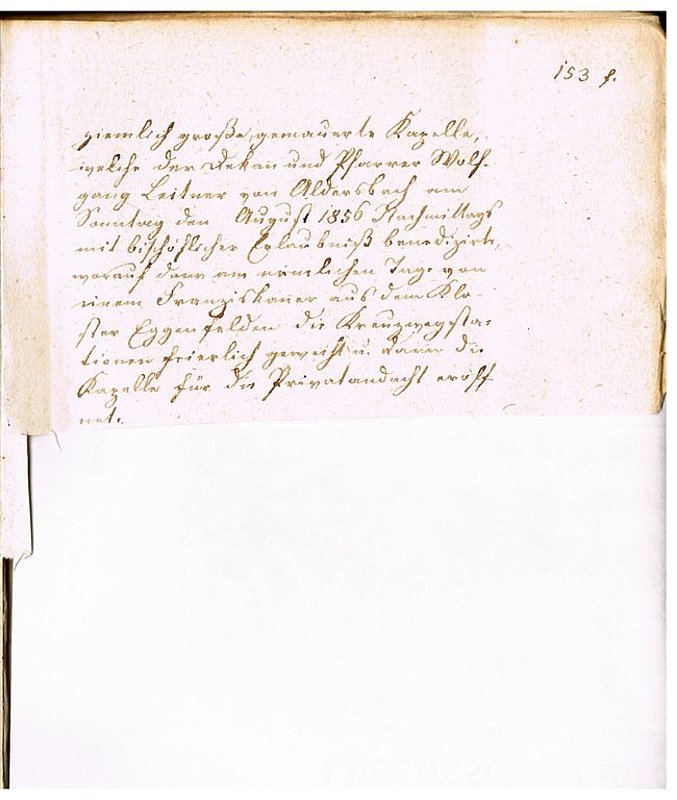 153 f.
ziemlich große, gemauerte Kapelle,
welche der Dekan und Pfarrer Wolf-
gang Leitner von Aldersbach am
Sonntag den August 1856 Nachmittags
mit bischöflicher Erlaubniß benedizirte,
worauf dann am nämlichen Tage von
einem Franziskaner aus dem Klo-
ster Eggenfelden die Kreuzwegsta-
tionen feierlich geweiht u. dann die
Kapelle für die Privatandacht eröff
net.